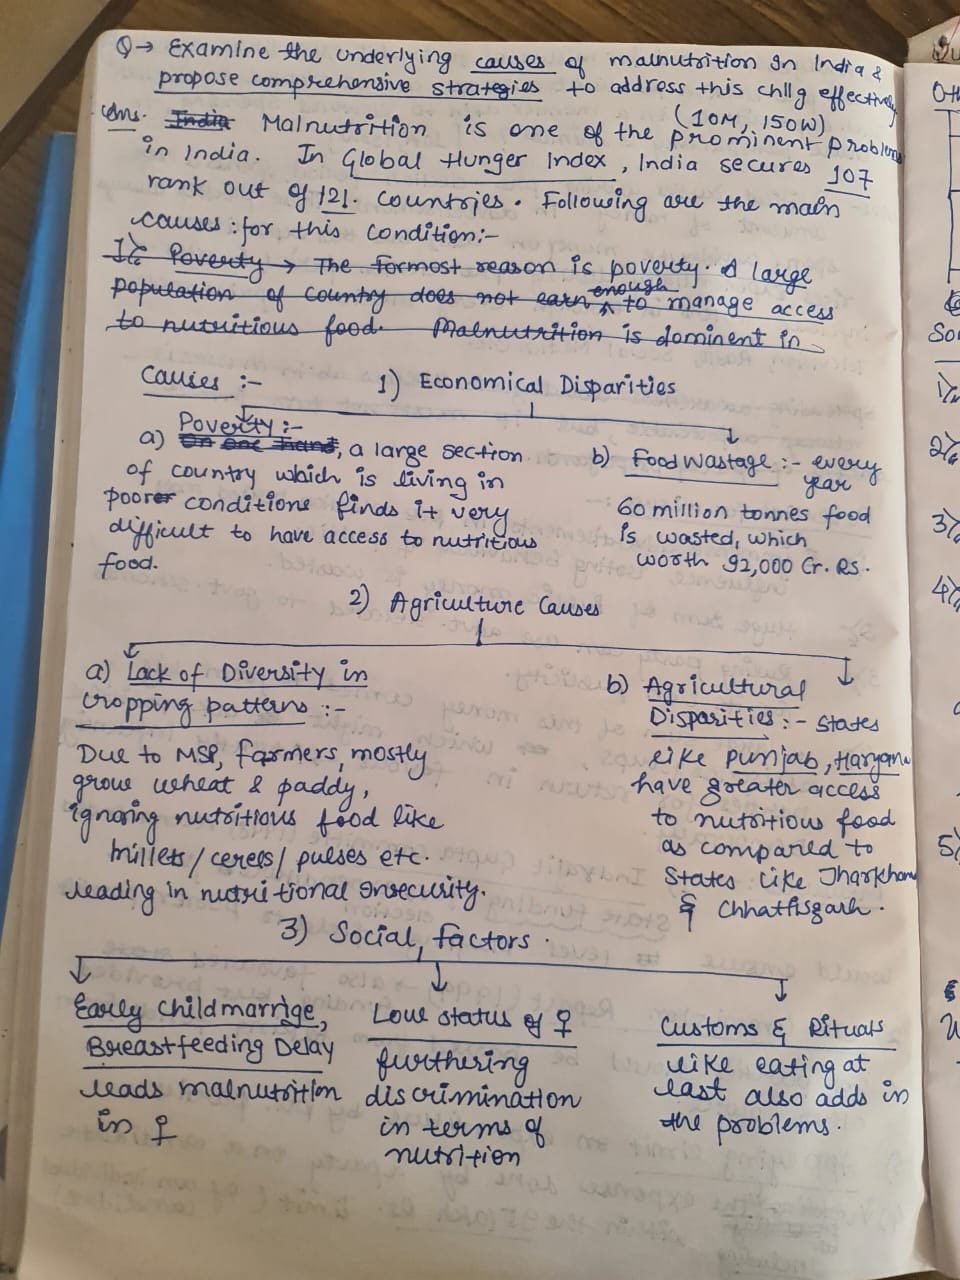 Q→ Examine the underlying causes of malnutrition in India &
propose comprehensive strategies to address this chllg effectively
(10M, 150W)
Ans. India Malnutrition is one of the prominent problems
in India. In Global Hunger Index, India secures 107
rank out of 121. countries. Following are the main
causes: for this condition:-
1% Poverty → The formost reason is poverty. A large
population of country does not earn enough to manage access
to nutritious food. Malnutrition is dominent in
Causes :- 1) Economical Disparities
Poverty :-
a) On one hand, a large section
of country which is living in
poorer conditions finds it very
difficult to have access to nutritious
food.
b) Food Wastage :- every
year
60 million tonnes food
is wasted, which
worth 92,000 Cr. RS.
2) Agriculture Causes
a) Lack of Diversity in
cropping patterns :-
Due to MSP, farmers, mostly
grow wheat & paddy,
ignoring nutritious food like
millets/cerels/pulses etc.
leading in nutritional insecurity.
b) Agricultural
Disparities :- States
like Punjab, Haryana
have greater access
to nutritious food
as compared to
States like Jharkhand
& Chhattisgarh.
3) Social, factors.
Early Childmarrige,
Breastfeeding Delay
leads malnutrition
in ♀
Low status of ♀
furthering
discrimination
in terms of
nutrition
Customs & Rituals
like eating at
last also adds in
the problems.
Oth
So
1%
2%
3%
4%
5%